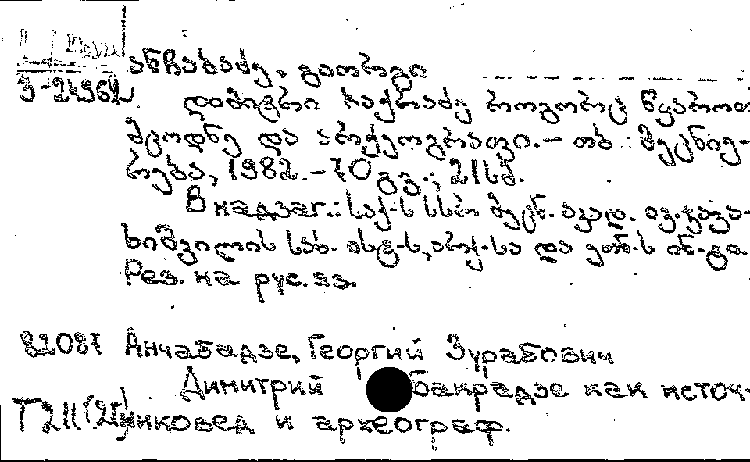 ანჩაბაძე, გიორგი
3-24962
დიმიტრი ბაქრაძე როგორც წყაროთ
მცოდნე და არქეოგრაფი. – თბ.: მეცნიე-
რება, 1982. – 70 გვ.; 21 სმ.
В надзаг.: საქ-ს სსრ მეცნ. აკად. ივ. ჯავა-
ხიშვილის სახ. ისტ-ს, არქ-სა და ეთნ-ს ინ-ტი.
Рез. на рус. яз.
82087 Анчабадзе, Георгий Зурабович
Димитрий Бакрадзе как источ-
Т211(25) никовед и археограф.